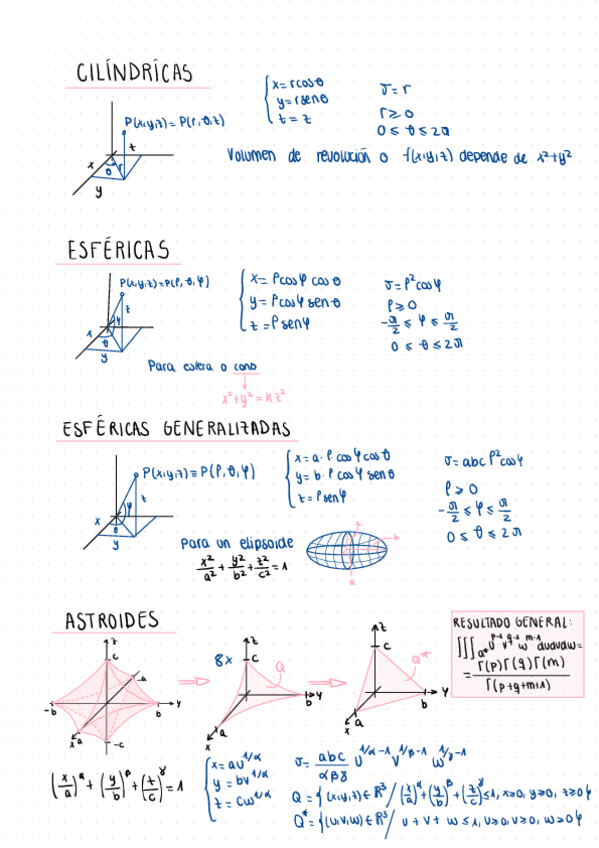 CILÍNDRICAS
x = r cos θ
y = r sen θ
z = z
J = r
r ≥ 0
0 ≤ θ ≤ 2π
P(x,y,z) = P(r, θ, z)
z
x
θ
r
y
Volumen de revolución o f(x,y,z) depende de x²+y²
ESFÉRICAS
P(x,y,z) = P(ρ, θ, φ)
z
φ
x
θ
y
x = ρ cos φ cos θ
y = ρ cos φ sen θ
z = ρ sen φ
J = ρ² cos φ
ρ ≥ 0
-π/2 ≤ φ ≤ π/2
0 ≤ θ ≤ 2π
Para esfera o cono
x²+y² = kz²
ESFÉRICAS GENERALIZADAS
P(x,y,z) ≡ P(ρ, θ, φ)
z
φ
x
θ
y
x = a · ρ · cos φ cos θ
y = b · ρ cos φ sen θ
z = ρ sen φ
J = abc ρ² cos φ
ρ ≥ 0
-π/2 ≤ φ ≤ π/2
0 ≤ θ ≤ 2π
Para un elipsoide
x²/a² + y²/b² + z²/c² = 1
c
b
a
ASTROIDES
z
c
-a
-b
b
y
a
x
-c
8x
z
c
Q
b
y
a
x
z
c
Q*
b
y
a
x
RESULTADO GENERAL:
∭_Q* u^(p-1) v^(q-1) w^(m-1) du dv dw =
= Γ(p) Γ(q) Γ(m) / Γ(p+q+m+1)
(x/a)^α + (y/b)^β + (z/c)^γ = 1
x = a u^(1/α)
y = b v^(1/α)
z = c w^(1/α)
J = abc/αβγ u^(1/α-1) v^(1/β-1) w^(1/γ-1)
Q = {(x,y,z) ∈ ℝ³ / (x/a)^α + (y/b)^β + (z/c)^γ ≤ 1, x≥0, y≥0, z≥0}
Q* = {(u,v,w) ∈ ℝ³ / u + v + w ≤ 1, u≥0, v≥0, w≥0}